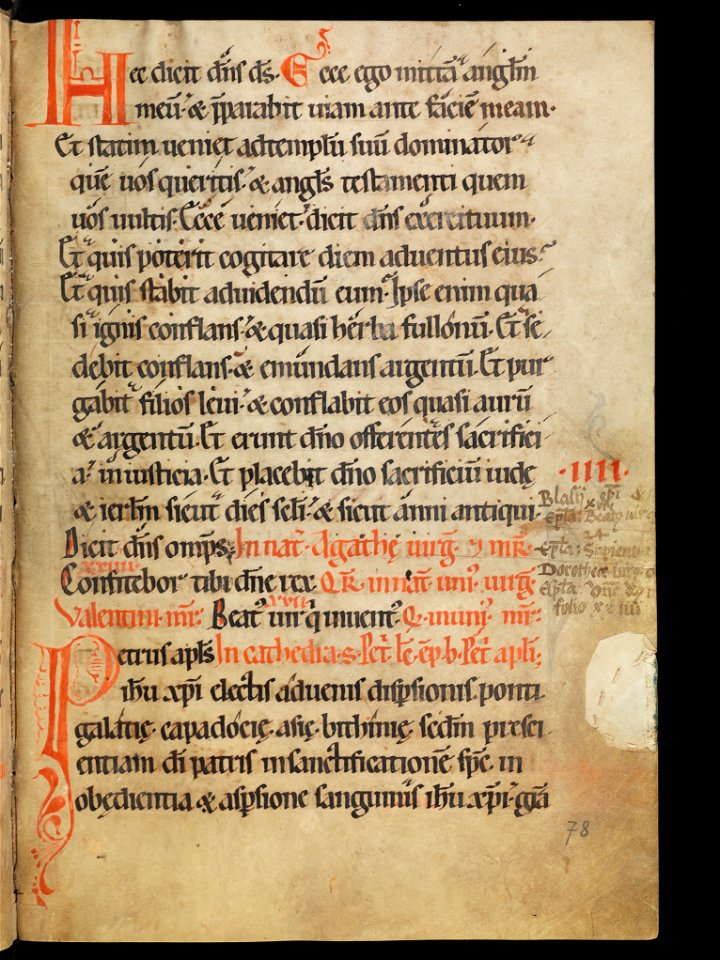 Hec dicit dn̄s ds̄. Ecce ego mittā angl̄m
meū· & p̄parabit uiam ante faciē meam·
Et statim ueniet ad templū suū dominator
quē uos queritis· & angl̄s testamenti quem
uos uultis· Ecce ueniet· dicit dn̄s exercituum·
Et quis poterit cogitare diem aduentus eius·
Et quis stabit ad uidendū eum· Ipse enim qua
si ignis conflans· & quasi herba fullonū· Et se
debit conflans· & emundans argentū· Et pur
gabit filios leui· & conflabit eos quasi aurū
& argentū· Et erunt dn̄o offerentes sacrifici
a· in iusticia· Et placebit dn̄o sacrificiū iudę
& ierl̄m sicut dies sc̄li· & sicut anni antiqui·
·IIII·
Dicit dn̄s omp̄s· In nat̄· Agathę uirḡ· 7 mr̄·
xxiiii
Confitebor tibi dn̄e rex· uirḡ
xvii
Valentini· mr̄· Beat᷒ uir q̄ inuent᷒· Q· muni᷒ mr̄·
Petrus apl̄s In cathedra· s· Pet̄· Lc̄· ep̄· b· Pet̄ apl̄i·
ih̄u xp̄i electis aduenis disp̄sionis ponti
galatię· capadocię· asię· bithinię· scd̄m presci
entiam dī patris in sanctificationē sp̄c· in
obędientia & asp̄sione sanguinis ih̄u xp̄i· gr̄a
Blasij ep̄i &
Epl̄a: Beatus vir
Epl̄a: Sapientia
Dorotheae virg
Epl̄a: Dn̄e
folio xx iiii
78